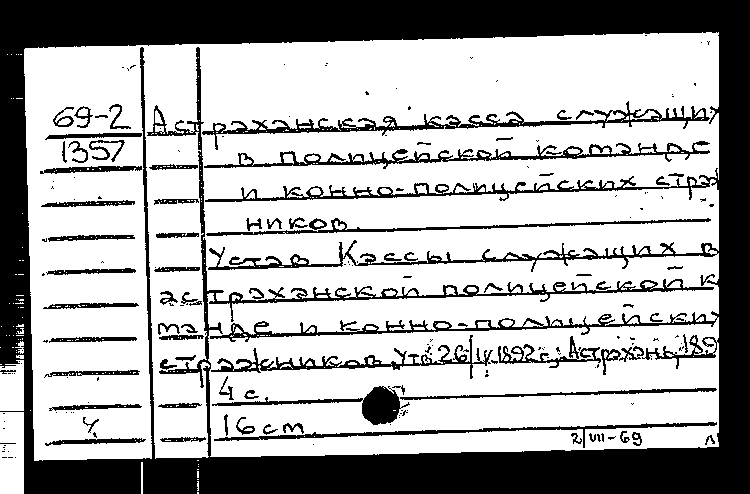 69-2 Астраханская касса служащих
1357 в полицейской команде
и конно-полицейских страж
ников.
Устав Кассы служащих в
астраханской полицейской к
манде и конно-полицейских
стражников. Утв. 26/IV 1892 г., Астрахань, 189
4 с.
16 см.
2/VII-69